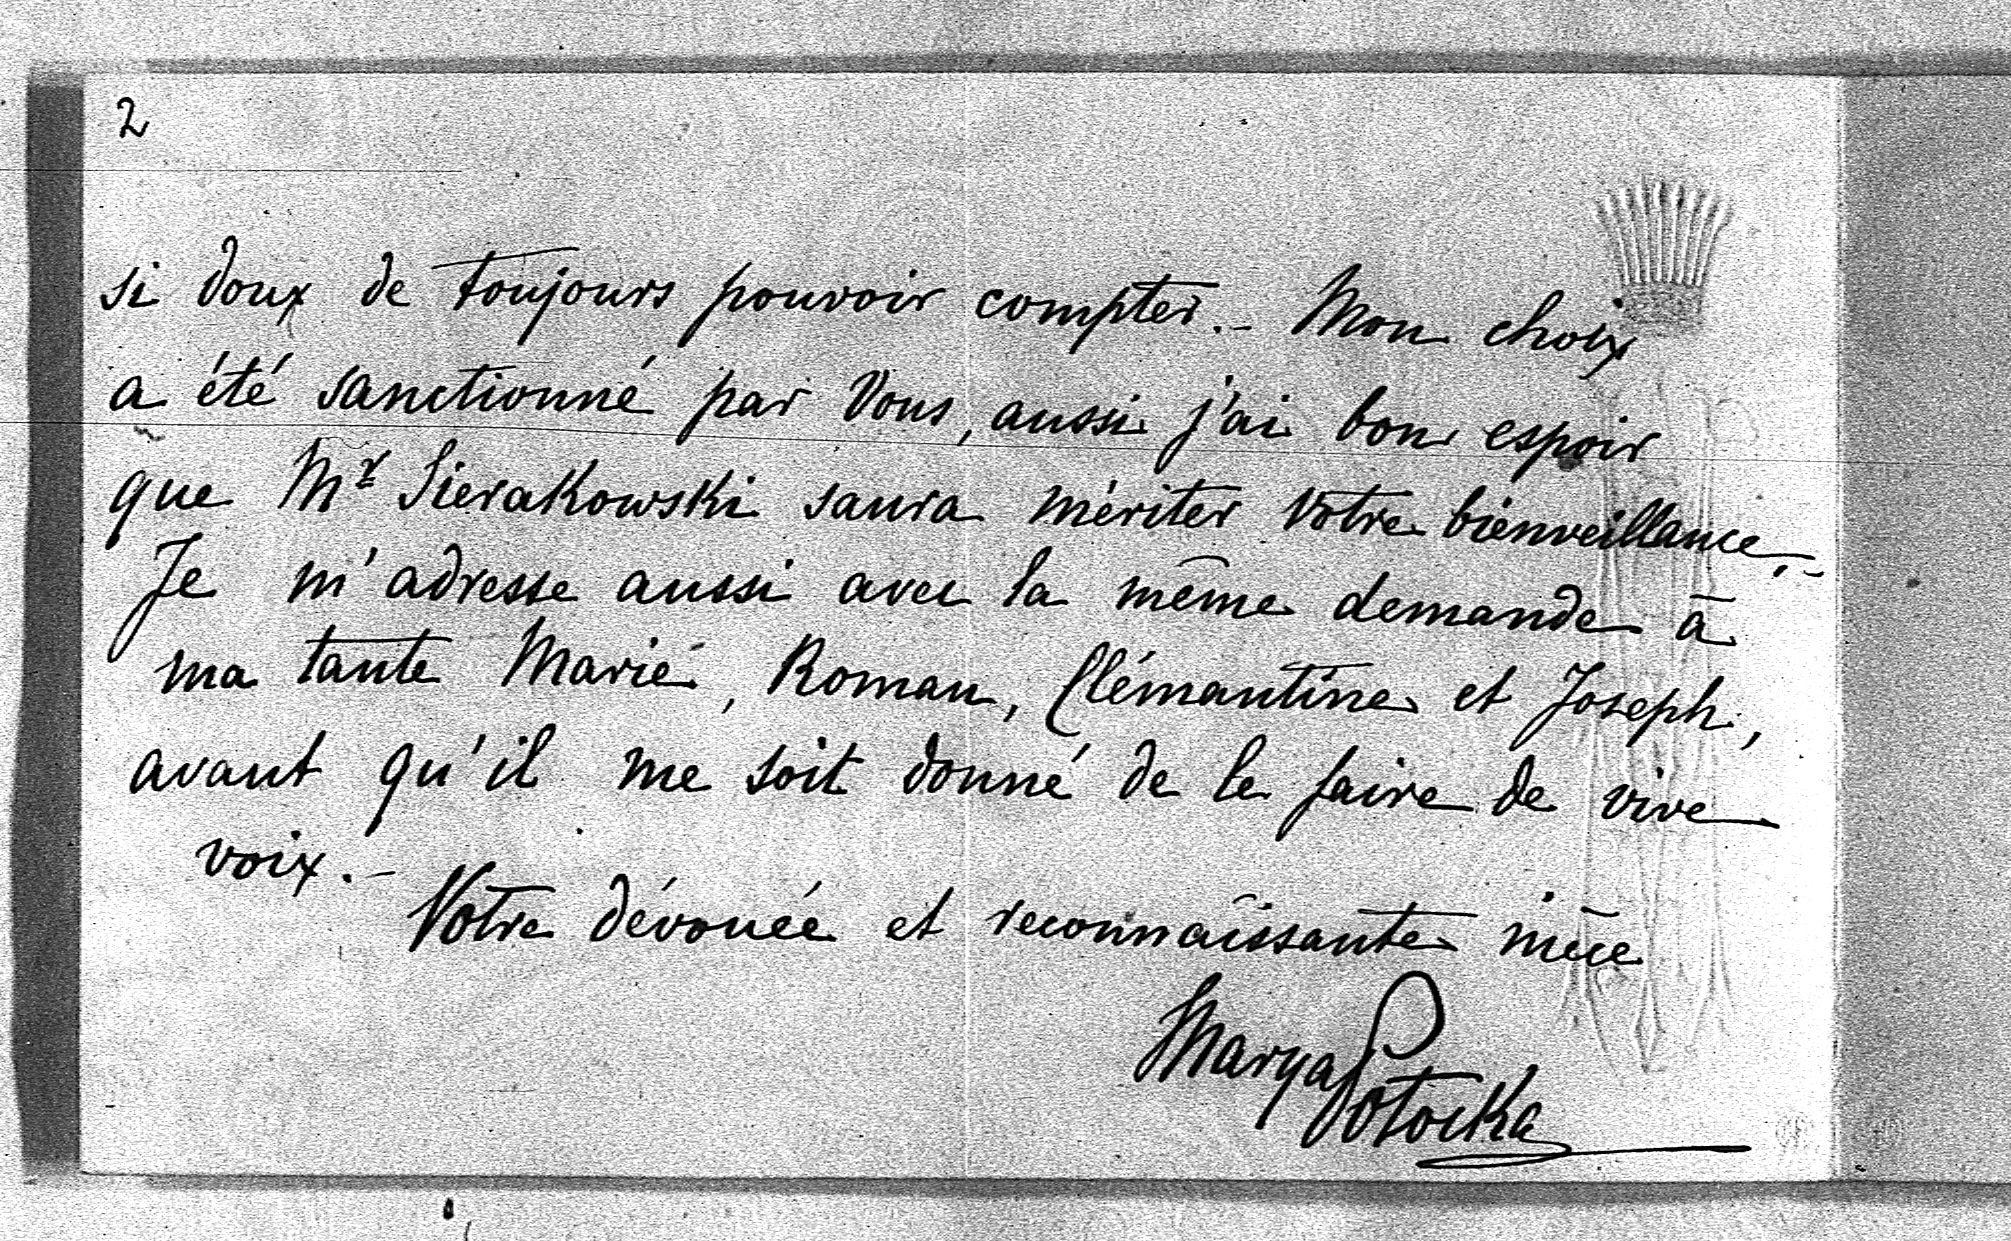 2
si doux de toujours pouvoir compter. – Mon choix
a été sanctionné par Vous, aussi j'ai bon espoir
que Mr Sierakowski saura mériter Votre bienveillance. –
Je m'adresse aussi avec la même demande à
ma tante Marie, Roman, Clémantine et Joseph,
avant qu'il me soit donné de le faire de vive
voix. –
Votre dévouée et reconnaissante nièce
Marya Potocka